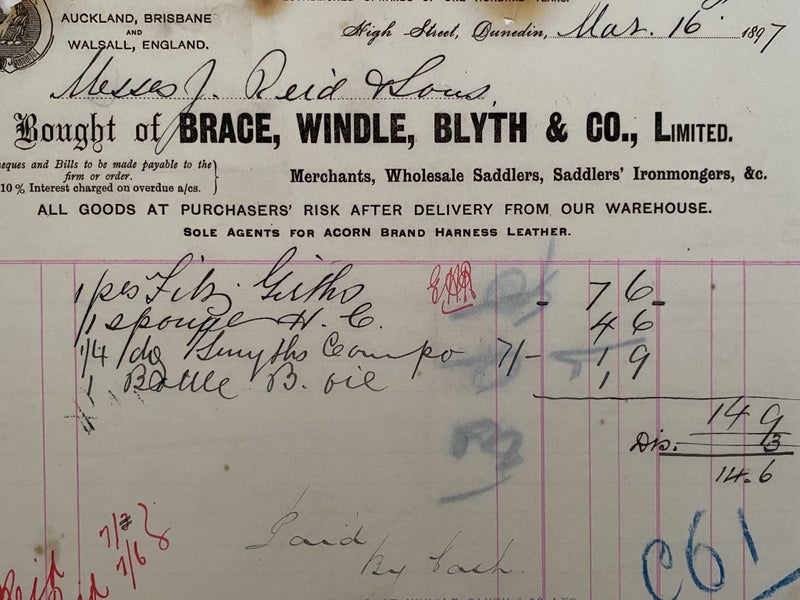 AUCKLAND, BRISBANE
AND
WALSALL, ENGLAND.
High Street, Dunedin, Mar. 16 1897
Messrs J. Reid & Sons
Bought of BRACE, WINDLE, BLYTH & CO., LIMITED.
eques and Bills to be made payable to the
firm or order.
10 % Interest charged on overdue a/cs.
Merchants, Wholesale Saddlers, Saddlers' Ironmongers, &c.
ALL GOODS AT PURCHASERS' RISK AFTER DELIVERY FROM OUR WAREHOUSE.
SOLE AGENTS FOR ACORN BRAND HARNESS LEATHER.
1 pes Fitz Girths 7 6
1 sponge H. C. 4 6
1/4 dz Smyths Compo 7/- 1 9
1 Bottle B. oil 1
14 9
Dis. 3
14.6
7/6
Paid
By Cash.
Reid
C61